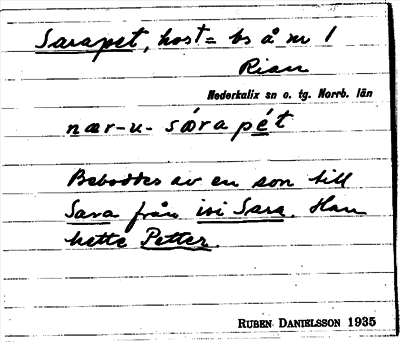 Sarapet, host= bs å nr 1
Rian
Nederkalix sn o. tg. Norrb. län
nær-u- særapét
Beboddes av en son till
Sara från isi Sara. Han
hette Petter.
RUBEN DANIELSSON 1935